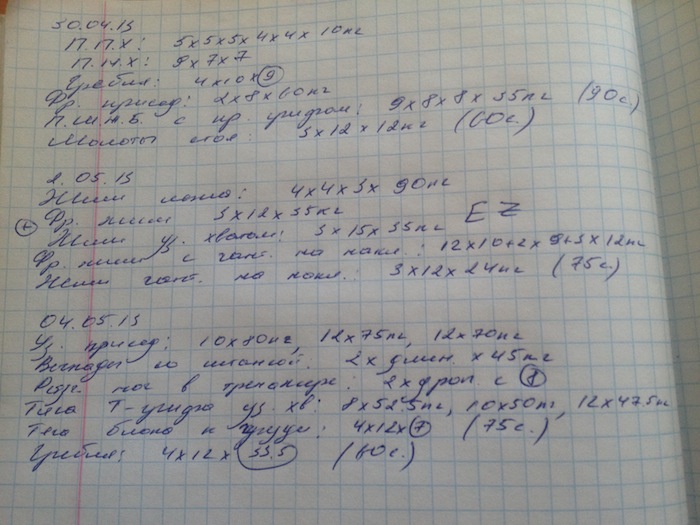 30.04.13
П.П.Х: 5x5x5x4x4x10кг
П.Н.Х: 9x7x7
Гребля: 4x10x9
Фр. присед: 2x8x60кг
П.Ш.Н.Б. с пр. грифом: 9x8x8x35кг (90с.)
Молоты стоя: 3x12x12кг (60с.)
2.05.13
Жим лежа: 4x4x3x90кг
Фр. жим 3x12x35кг
Жим уз. хватом: 3x15x35кг EZ
Фр. жим с гант. на накл.: 12x10+2x9+3x12кг
Жим гант. на накл.: 3x12x24кг (75с.)
04.05.13
Уз. присед: 10x80кг, 12x75кг, 12x70кг
Выпады со штангой: 2x длин. x45кг
ног в тренажере: 2x дроп. с
Тяга Т-грифа уз. хв: 8x52.5кг, 10x50кг, 12x47.5кг
Тяга блока к груди: 4x12x7 (75с.)
Гребля: 4x12x 33.5 (60с.)